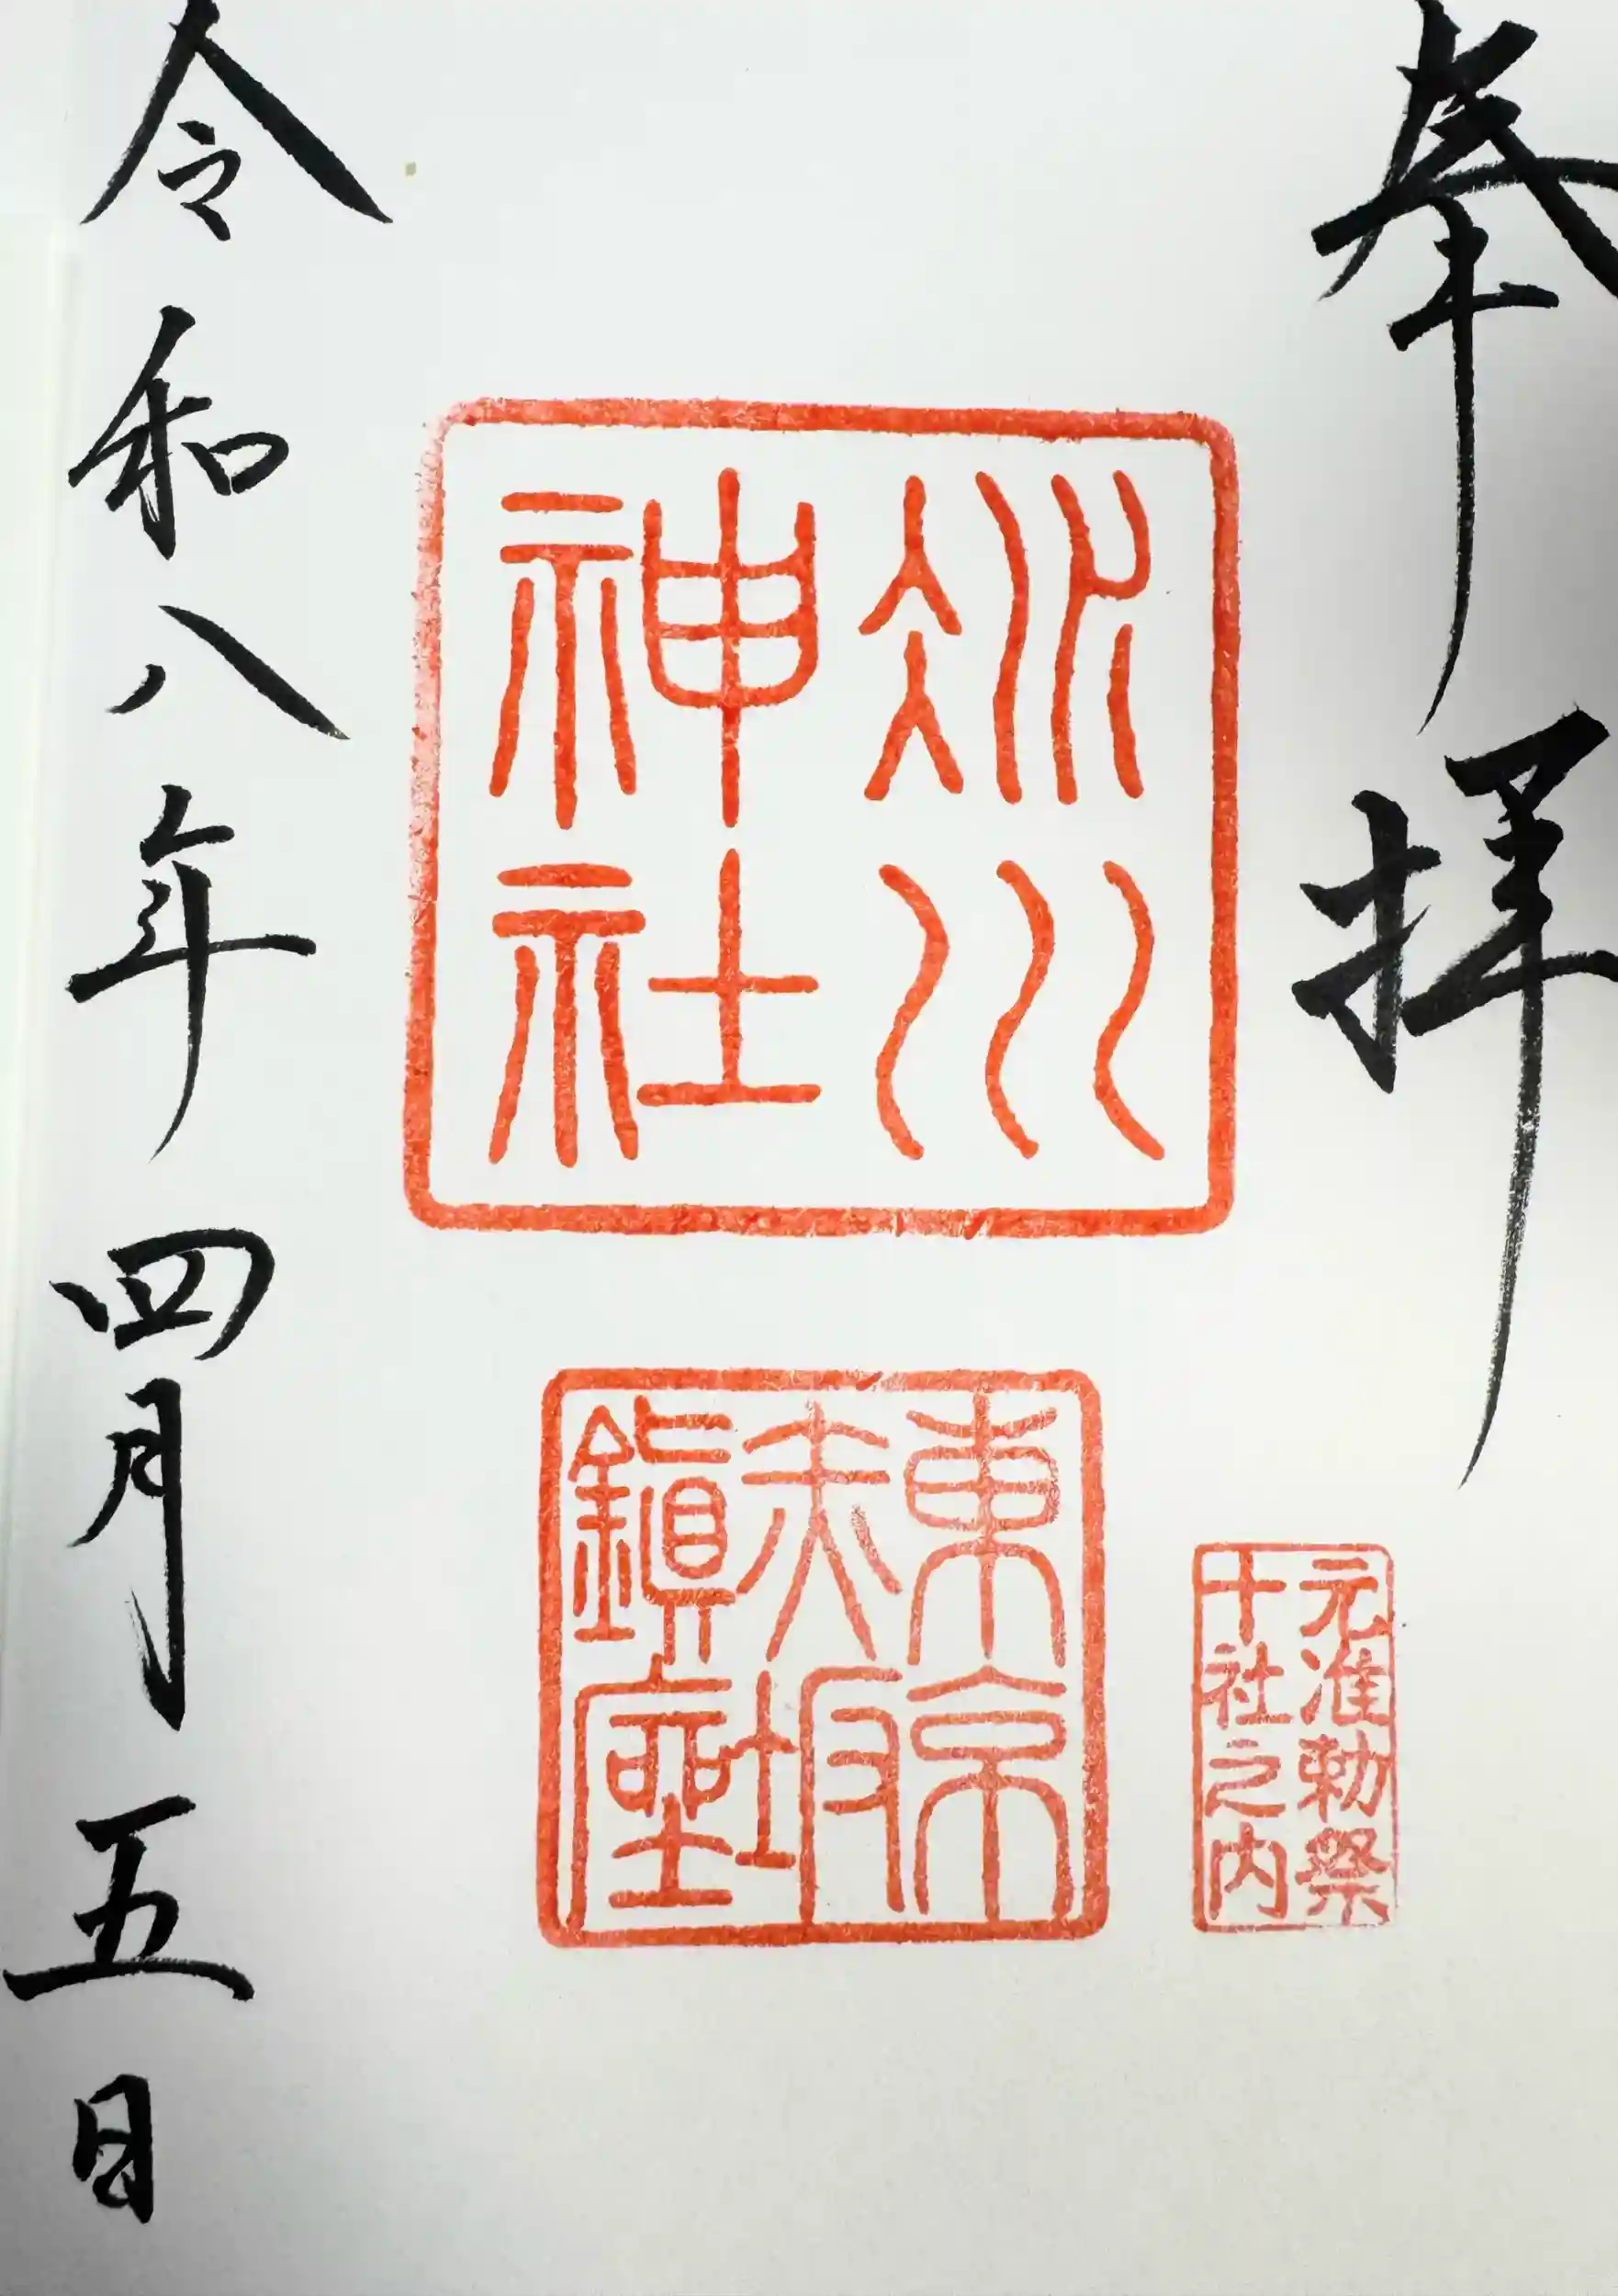 奉拝
氷川
神社
元准勅祭
十社之内
東京
赤坂
鎮座
令和八年四月五日